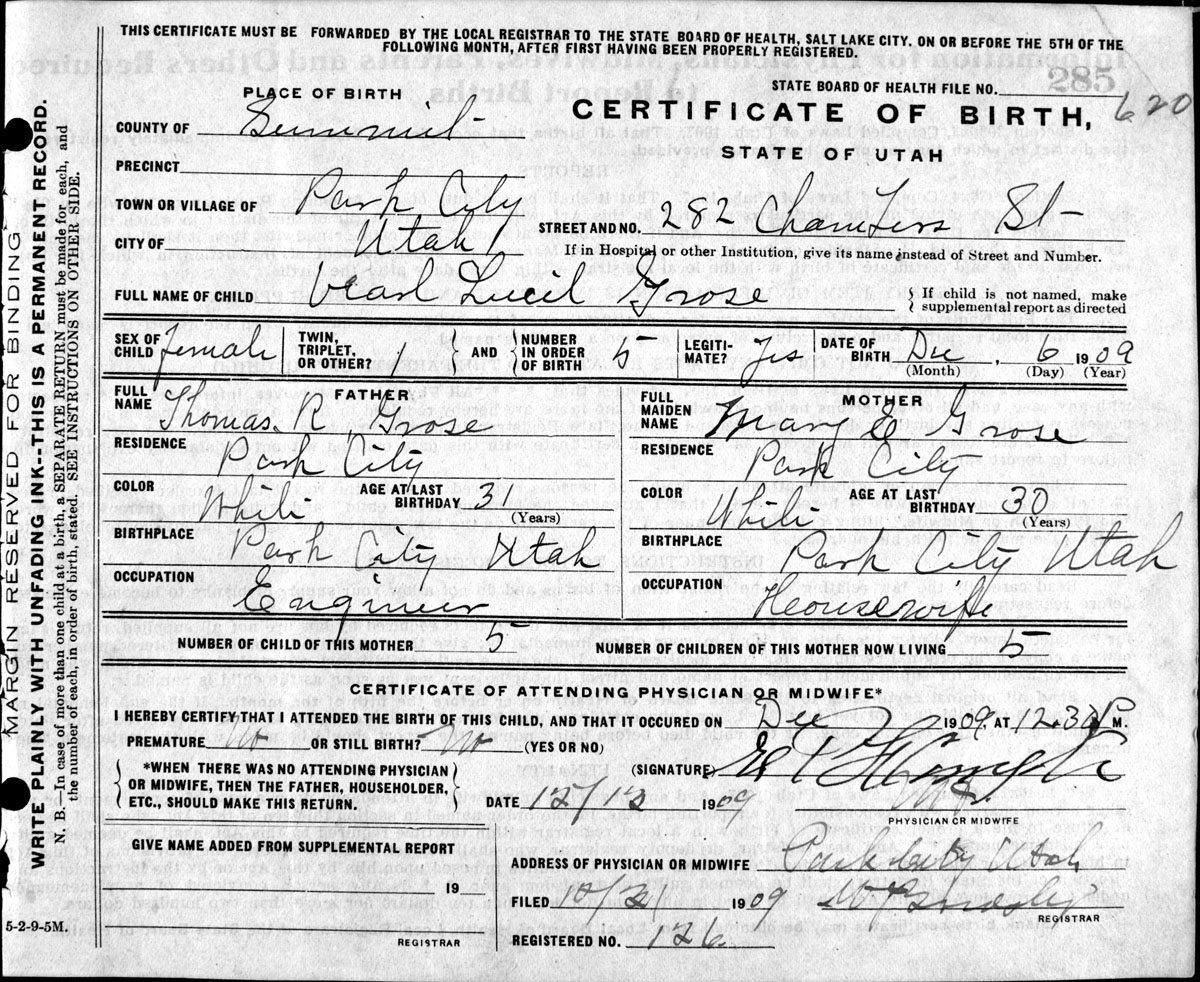 THIS CERTIFICATE MUST BE FORWARDED BY THE LOCAL REGISTRAR TO THE STATE BOARD OF HEALTH, SALT LAKE CITY, ON OR BEFORE THE 5TH OF THE
FOLLOWING MONTH, AFTER FIRST HAVING BEEN PROPERLY REGISTERED.
285
PLACE OF BIRTH
STATE BOARD OF HEALTH FILE NO.
620
COUNTY OF Summit
CERTIFICATE OF BIRTH,
STATE OF UTAH
PRECINCT
TOWN OR VILLAGE OF Park City
STREET AND NO. 282 Chambers St
CITY OF Utah
If in Hospital or other Institution, give its name instead of Street and Number.
FULL NAME OF CHILD Pearl Lucil Grose
{ If child is not named, make
supplemental report as directed
SEX OF CHILD Female
TWIN, TRIPLET, OR OTHER? 1
AND NUMBER IN ORDER OF BIRTH 5
LEGITI- MATE? Yes
DATE OF BIRTH Dec, 6 1909
(Month) (Day) (Year)
FATHER
FULL NAME Thomas R Grose
RESIDENCE Park City
COLOR White AGE AT LAST BIRTHDAY 31
(Years)
BIRTHPLACE Park City Utah
OCCUPATION Engineer
MOTHER
FULL MAIDEN NAME Mary E Grose
RESIDENCE Park City
COLOR White AGE AT LAST BIRTHDAY 30
(Years)
BIRTHPLACE Park City Utah
OCCUPATION Housewife
NUMBER OF CHILD OF THIS MOTHER 5
NUMBER OF CHILDREN OF THIS MOTHER NOW LIVING 5
CERTIFICATE OF ATTENDING PHYSICIAN OR MIDWIFE*
I HEREBY CERTIFY THAT I ATTENDED THE BIRTH OF THIS CHILD, AND THAT IT OCCURED ON Dec 1909, AT 12.30 P M.
PREMATURE No OR STILL BIRTH? No (YES OR NO)
*WHEN THERE WAS NO ATTENDING PHYSICIAN
OR MIDWIFE, THEN THE FATHER, HOUSEHOLDER,
ETC., SHOULD MAKE THIS RETURN.
(SIGNATURE)
DATE 12/13 1909
PHYSICIAN OR MIDWIFE
GIVE NAME ADDED FROM SUPPLEMENTAL REPORT
19
REGISTRAR
ADDRESS OF PHYSICIAN OR MIDWIFE Park City Utah
FILED 1909
REGISTRAR
REGISTERED NO. 126
5-2-9-5M.
MARGIN RESERVED FOR BINDING
WRITE PLAINLY WITH UNFADING INK--THIS IS A PERMANENT RECORD.
N. B.—In case of more than one child at a birth, a SEPARATE RETURN must be made for each, and
the number of each, in order of birth, stated. SEE INSTRUCTIONS ON OTHER SIDE.